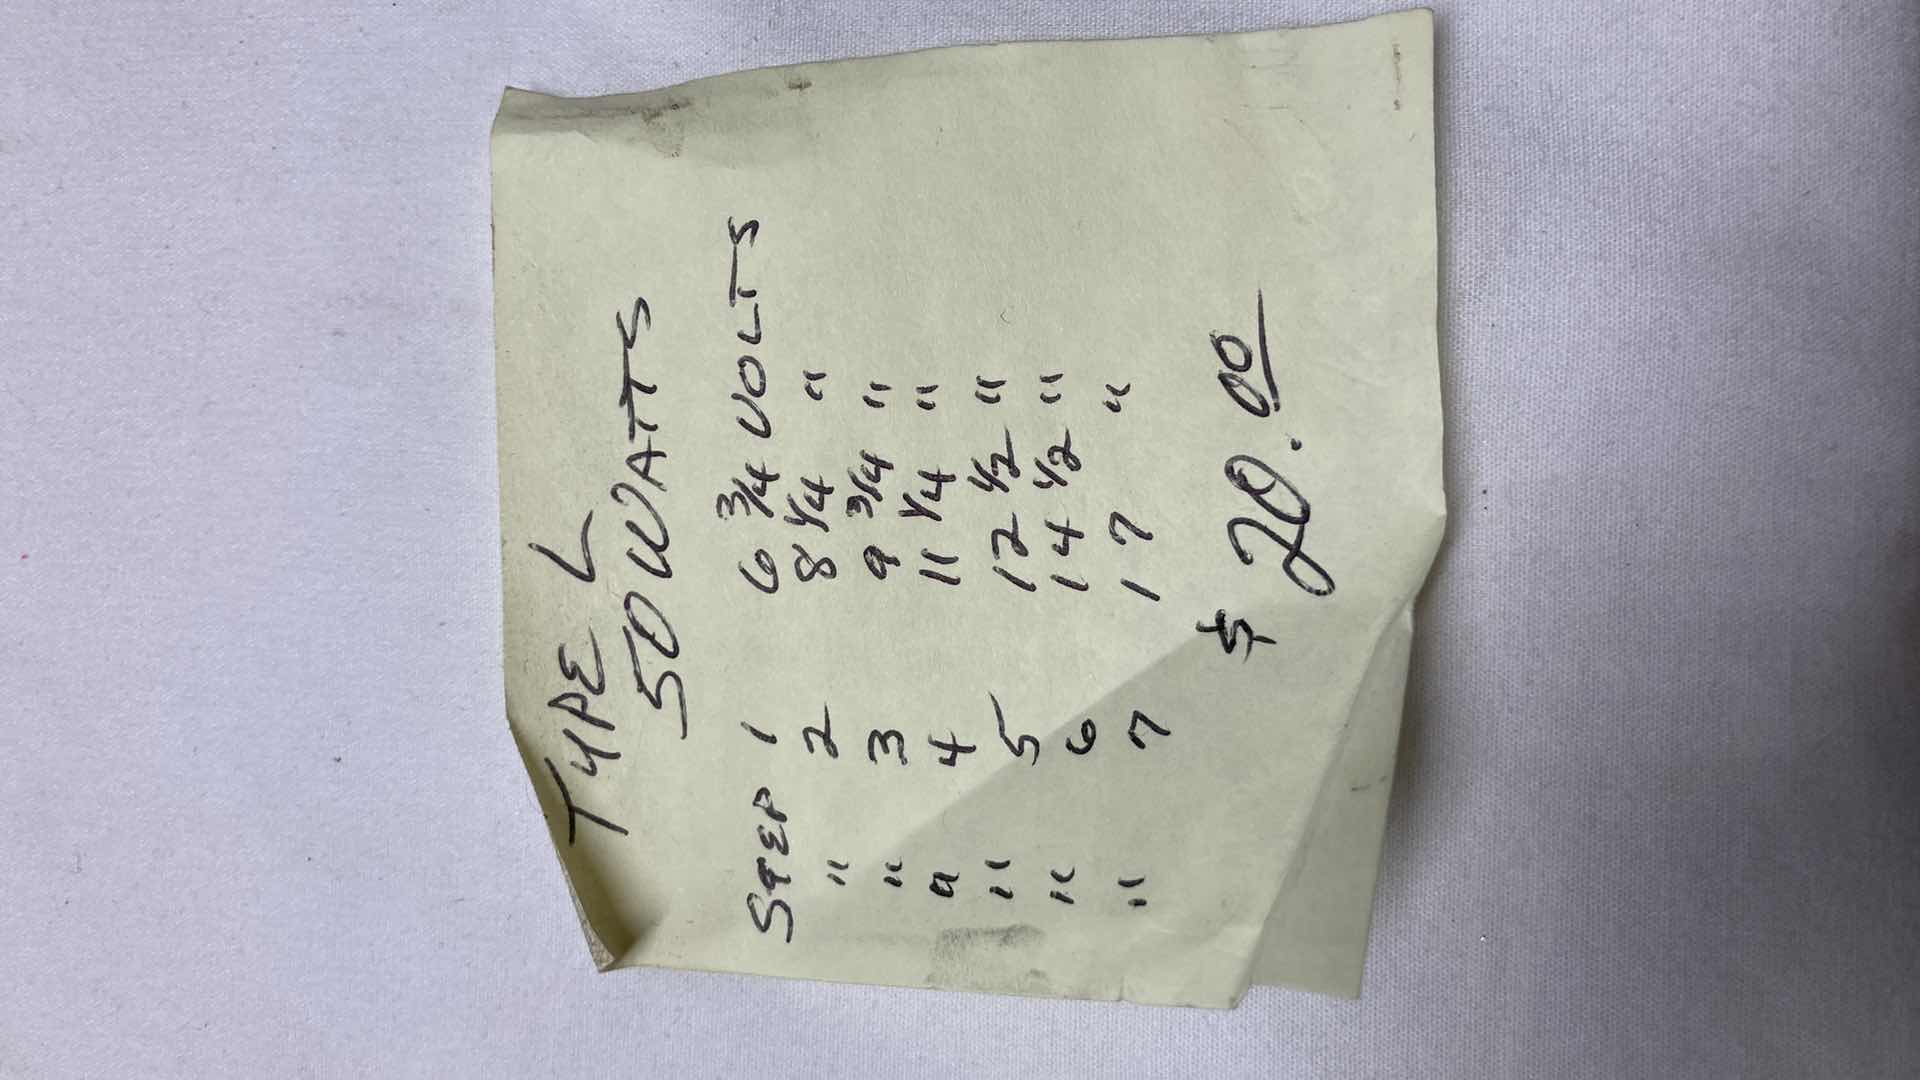 TYPE L
50 WATTS
STEP 1 6 3/4 VOLTS
" 2 8 1/4 "
" 3 9 3/4 "
" 4 11 1/4 "
" 5 12 1/2 "
" 6 14 1/2 "
" 7 17 "
$ 20.00